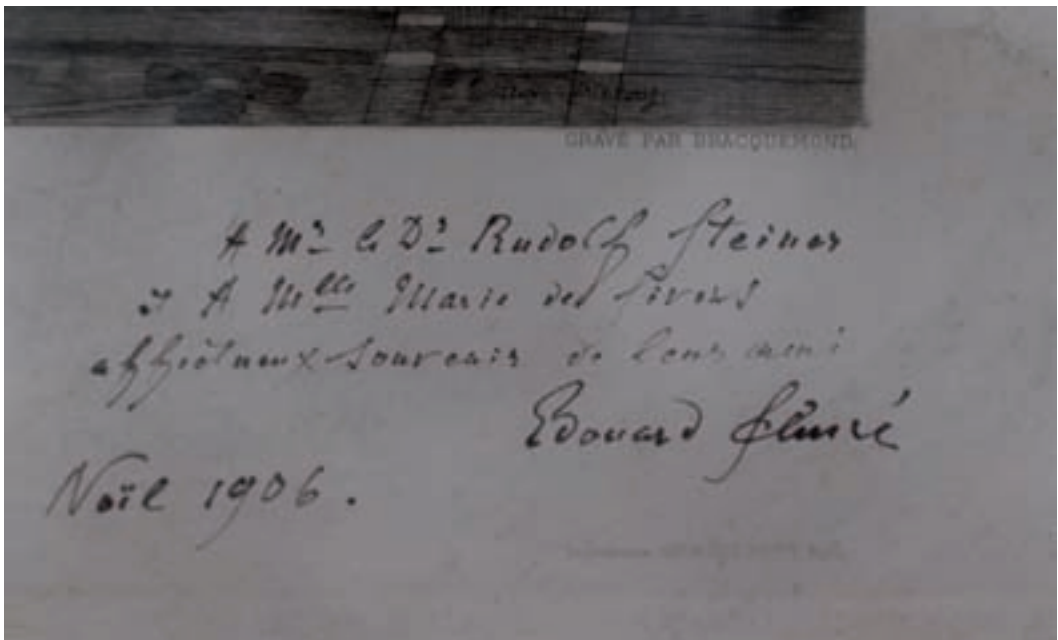 GRAVÉ PAR BRACQUEMOND
A Mr le Dr Rudolf Steiner
et A Mlle Marie de Sivers
affectueux souvenir de leur ami
Edouard Schuré
Noël 1906.